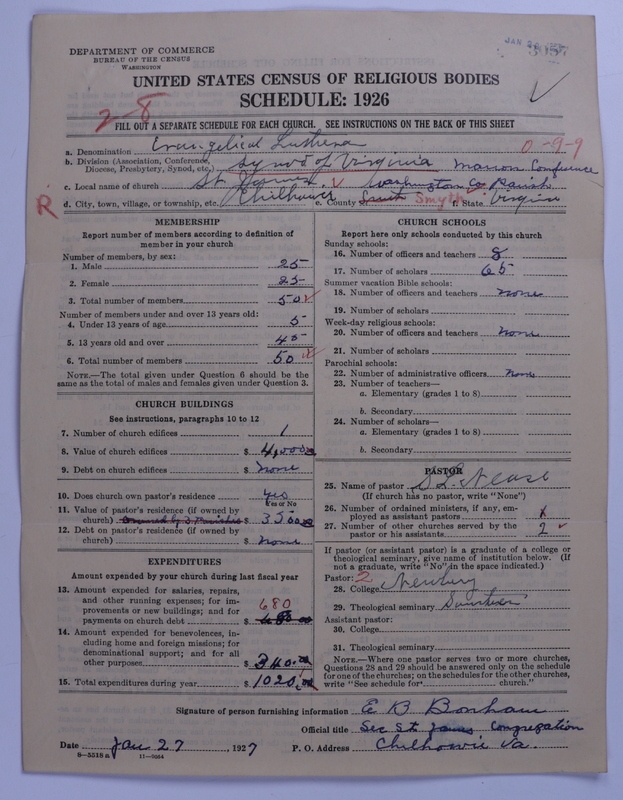 DEPARTMENT OF COMMERCE
BUREAU OF THE CENSUS
WASHINGTON
JAN
3057
UNITED STATES CENSUS OF RELIGIOUS BODIES
SCHEDULE: 1926
2-8
FILL OUT A SEPARATE SCHEDULE FOR EACH CHURCH. SEE INSTRUCTIONS ON THE BACK OF THIS SHEET
a. Denomination Evangelical Lutheran 0-9-9
b. Division (Association, Conference, Diocese, Presbytery, Synod, etc.) Synod of Virginia Marion Conference
c. Local name of church St. James Washington Co Parish
R d. City, town, village, or township, etc. Chilhowie e. County Smyth f. State Virginia
MEMBERSHIP
Report number of members according to definition of member in your church
Number of members, by sex:
1. Male 25
2. Female 25
3. Total number of members 50
Number of members under and over 13 years old:
4. Under 13 years of age 5
5. 13 years old and over 45
6. Total number of members 50
NOTE.—The total given under Question 6 should be the same as the total of males and females given under Question 3.
CHURCH BUILDINGS
See instructions, paragraphs 10 to 12
7. Number of church edifices 1
8. Value of church edifices $ 4,000.00
9. Debt on church edifices $ None
10. Does church own pastor's residence yes
Yes or No
11. Value of pastor's residence (if owned by church) Owned by 3 Parishes $ 3500.00
12. Debt on pastor's residence (if owned by church) $ None
EXPENDITURES
Amount expended by your church during last fiscal year
13. Amount expended for salaries, repairs, and other running expenses; for improvements or new buildings; and for payments on church debt $ 680
14. Amount expended for benevolences, including home and foreign missions; for denominational support; and for all other purposes $ 340.00
15. Total expenditures during year $ 1020.00
CHURCH SCHOOLS
Report here only schools conducted by this church
Sunday schools:
16. Number of officers and teachers 8
17. Number of scholars 65
Summer vacation Bible schools:
18. Number of officers and teachers none
19. Number of scholars
Week-day religious schools:
20. Number of officers and teachers none
21. Number of scholars
Parochial schools:
22. Number of administrative officers none
23. Number of teachers—
a. Elementary (grades 1 to 8)
b. Secondary
24. Number of scholars—
a. Elementary (grades 1 to 8)
b. Secondary
PASTOR
25. Name of pastor S L Nease
(If church has no pastor, write "None")
26. Number of ordained ministers, if any, employed as assistant pastors
27. Number of other churches served by the pastor or his assistants 2
If pastor (or assistant pastor) is a graduate of a college or theological seminary, give name of institution below. (If not a graduate, write "No" in the space indicated.)
Pastor: 2
28. College Newbury
29. Theological seminary Southern
Assistant pastor:
30. College
31. Theological seminary
NOTE.—Where one pastor serves two or more churches, Questions 28 and 29 should be answered only on the schedule for one of the churches; on the schedules for the other churches, write "See schedule for church."
Signature of person furnishing information E B Bonham
Official title Sec St James Congregation
Date Jan 27, 1927 P. O. Address Chilhowie Va.
8-5518 a 11-9064